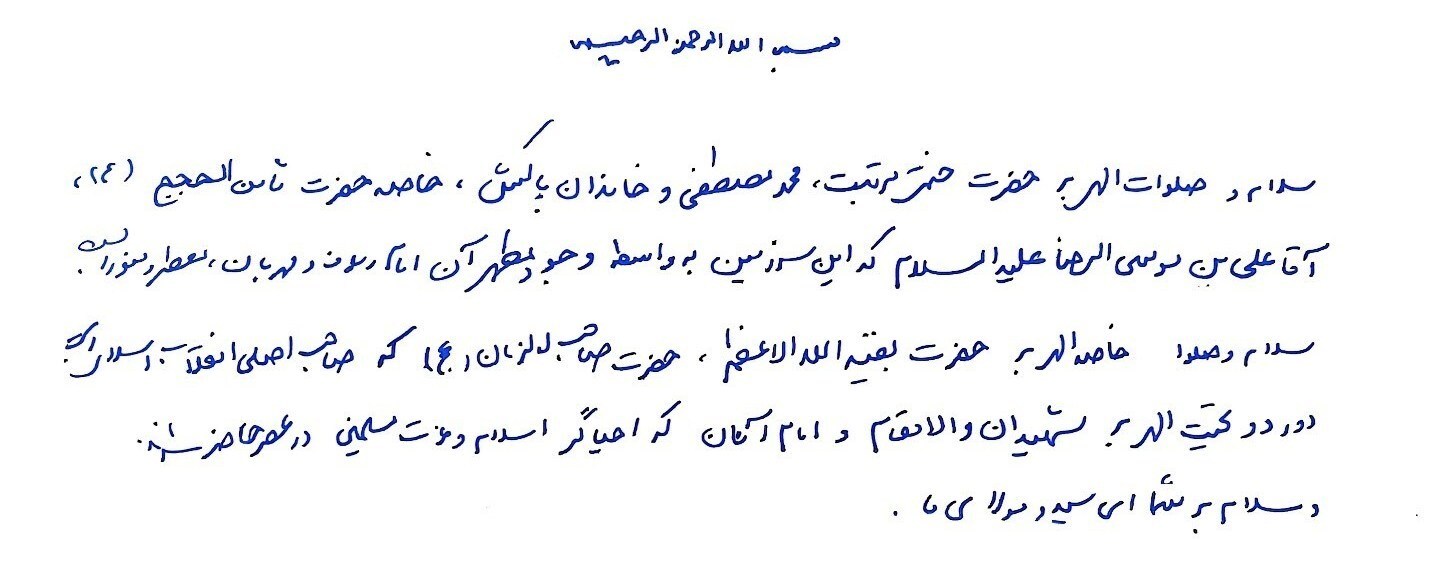 بسم الله الرحمن الرحیم
سلام و صلوات الهی بر حضرت ختمی مرتبت، محمد مصطفی و خاندان پاکش، خاصه حضرت ثامن الحجج (ع)،
آقا علی بن موسی الرضا علیه السلام که این سرزمین به واسطه وجود مطهر آن امام رئوف و مهربان، معطر و منور است.
سلام و صلوات خاصه الهی بر حضرت بقیة الله الاعظم، حضرت صاحب الزمان (عج) که صاحب اصلی انقلاب اسلامی است.
درود و تحیت الهی بر شهیدان والامقام و امام آنان که احیاگر اسلام و عزت مسلمین در عصر حاضر شدند.
و سلام بر شما ای سید و مولای ما.